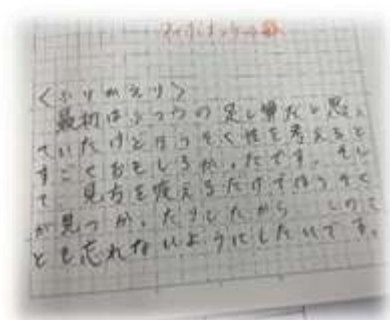 <ふりかえり>
最初はふつうの足し算だと思っ
ていたけどきそく性を考えると
すごくおもしろかったです。そし
て、見方を変えるだけできそく
が見つかったりしたから
とも忘れないようにしたいです。